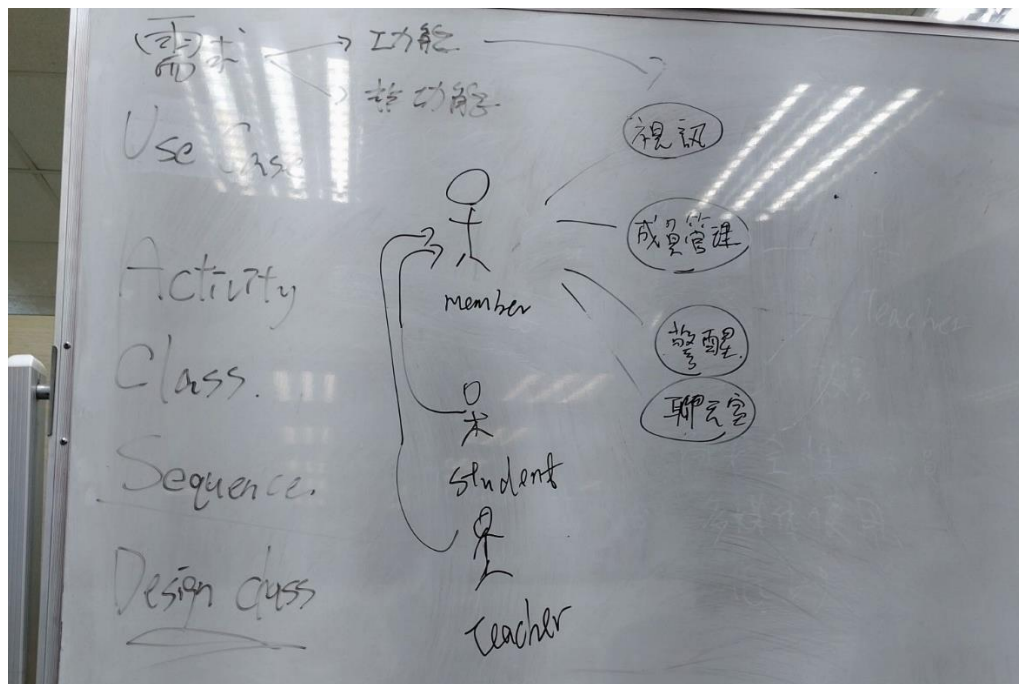 需求
功能
非功能
Use Case
Activity
Class.
Sequence.
Design class
member
student
teacher
視訊
成員管理
警醒
聊天室
Teacher